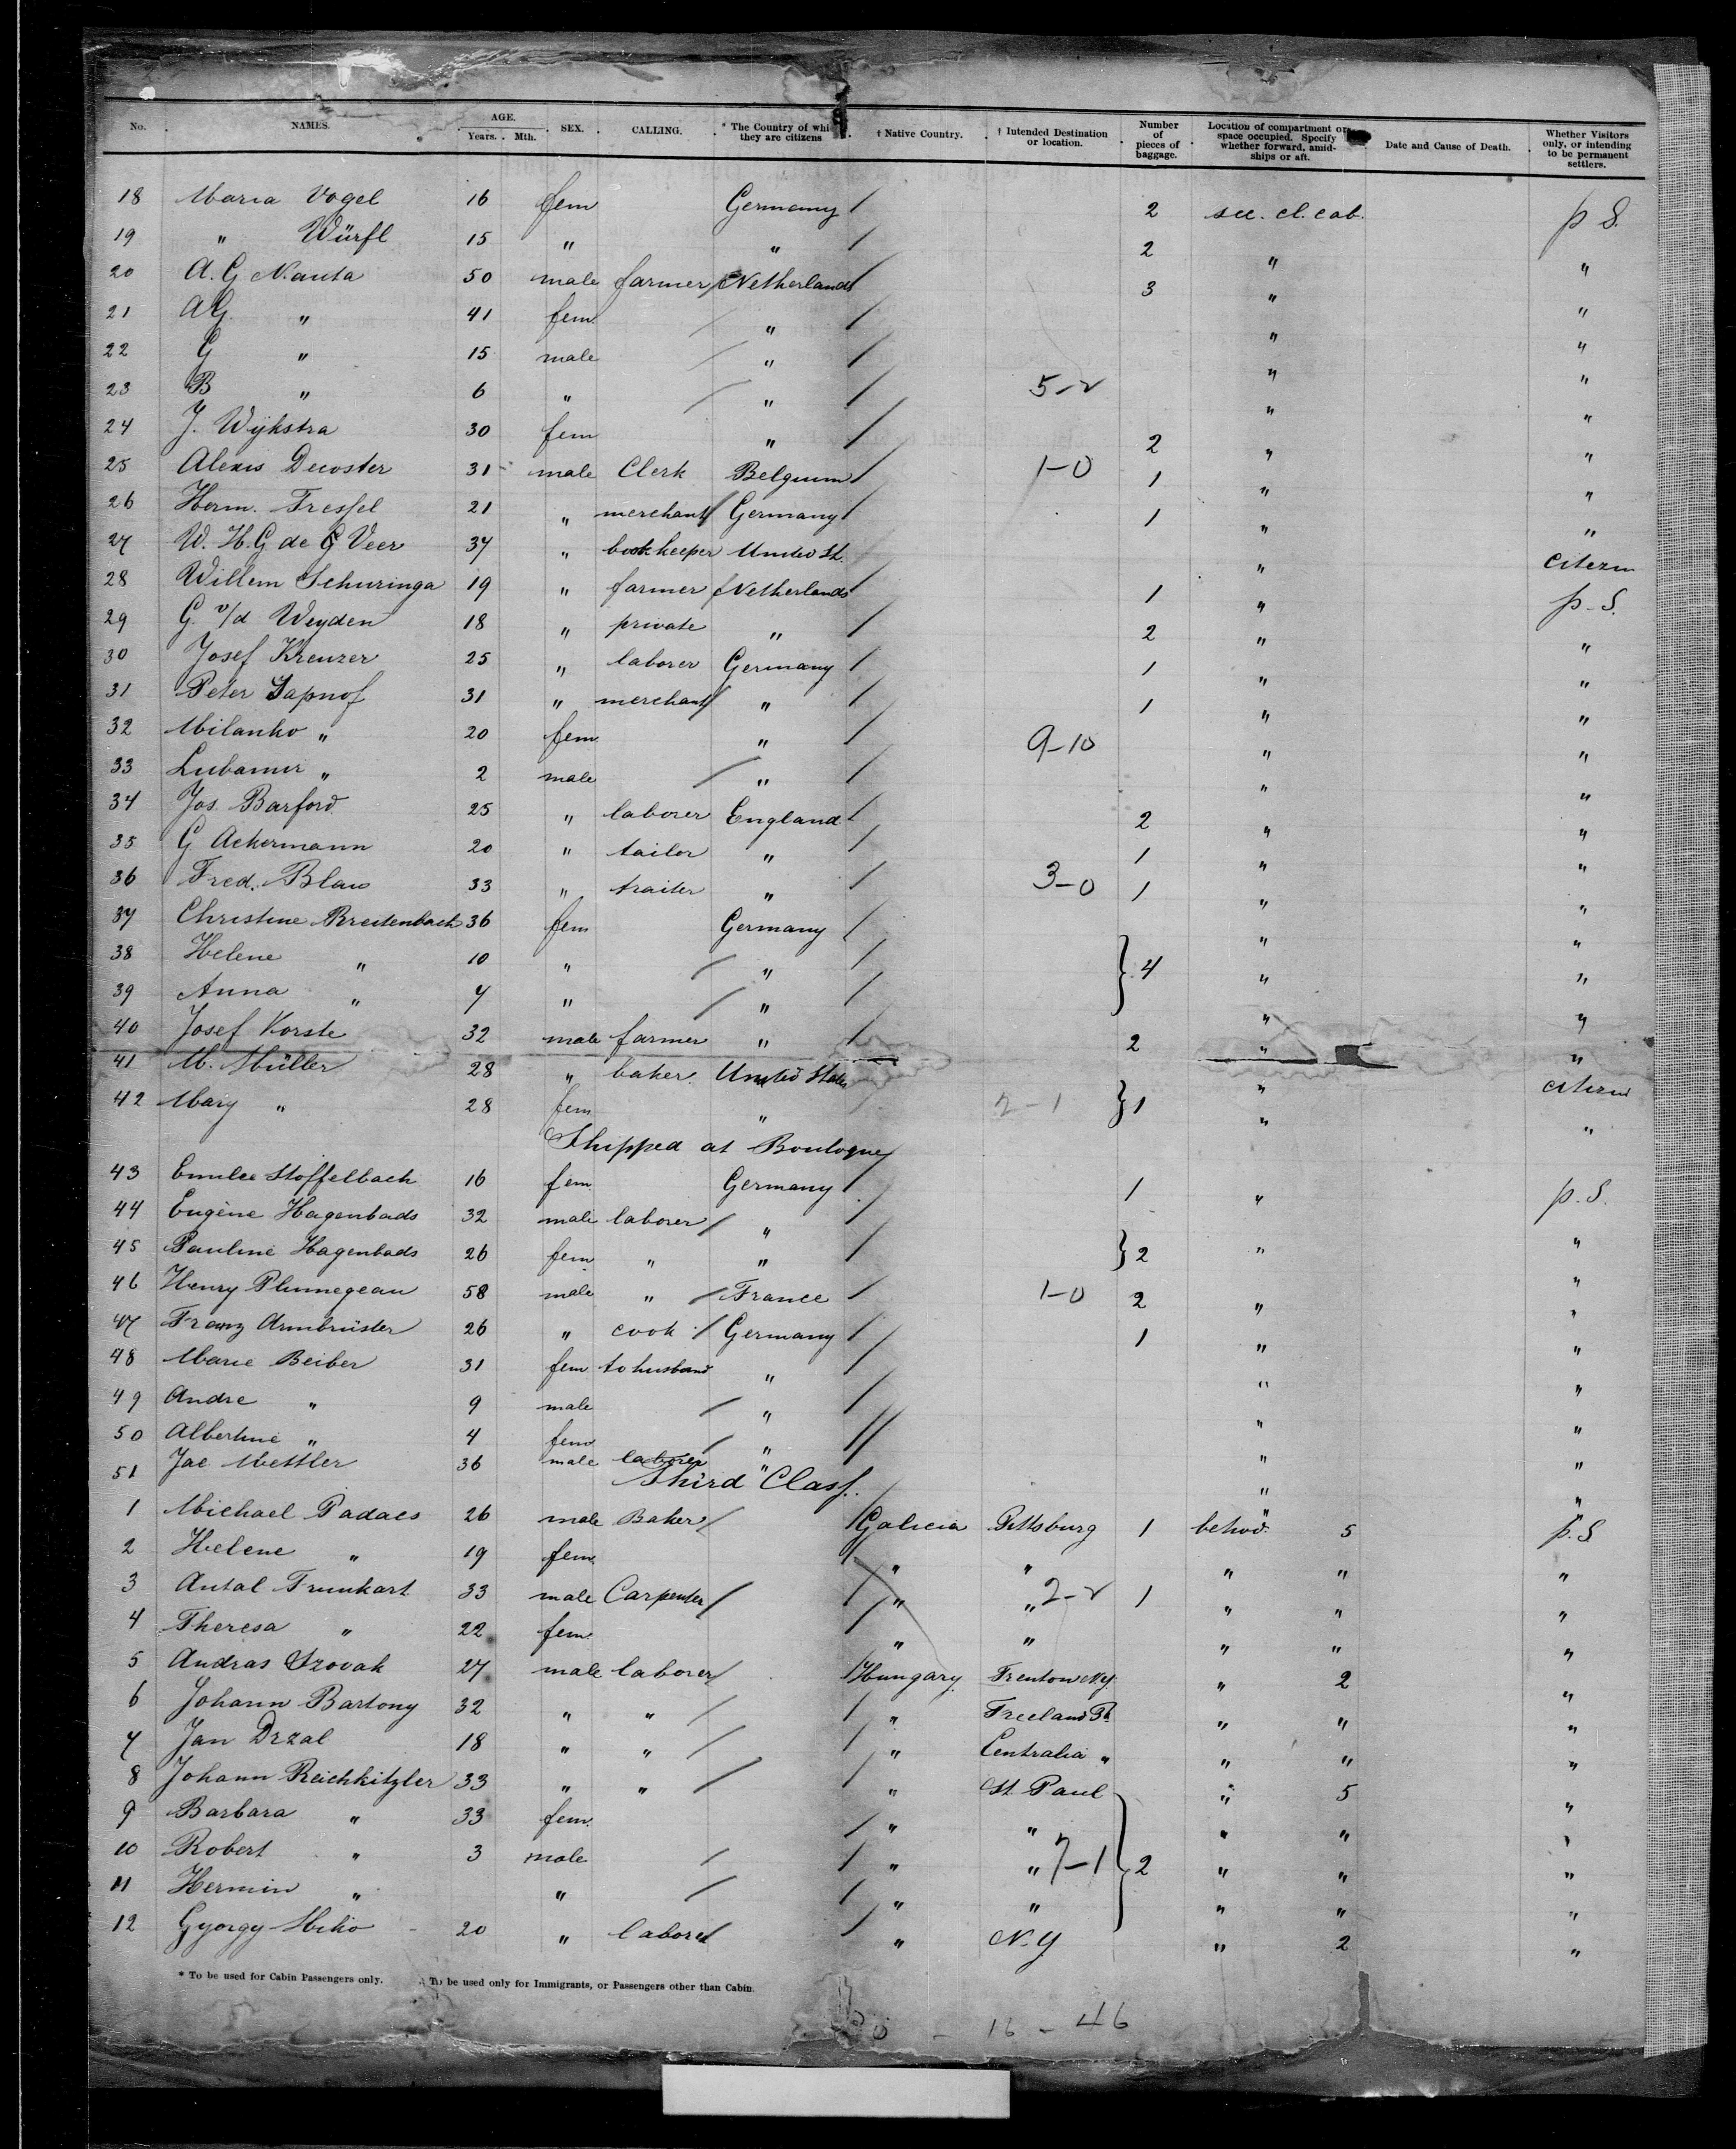 No. NAMES. AGE. Years. Mth. SEX. CALLING. * The Country of whi they are citizens † Native Country. † Intended Destination or location. Number of pieces of baggage. Location of compartment or space occupied. Specify whether forward, amidships or aft. Date and Cause of Death. Whether Visitors only, or intending to be permanent settlers.
18 Maria Vogel 16 fem Germany / 2 sec. cl. cab. p S.
19 " Würfl 15 " " / 2 " "
20 A. G Nauta 50 male farmer / Netherlands / 3 " "
21 AG. " 41 fem. / " / " "
22 G " 15 male / " / " "
23 B " 6 " / " / 5-2 " "
24 J. Wijkstra 30 fem " / 2 " "
25 Alexis Decoster 31 male Clerk Belgium / 1-0 1 " "
26 Herm. Fressel 21 " merchant / Germany / 1 " "
27 W. H. G de G Veer 37 " bookkeeper United St. " Citizen
28 Willem Schuringa 19 " farmer / Netherlands 1 " p. S.
29 G. v/d Weyden 18 " private " / 2 " "
30 Josef Kreuzer 25 " laborer Germany / 1 " "
31 Peter Japnof 31 " merchant / " / 1 " "
32 Milanko " 20 fem. " / 9-10 " "
33 Lubamir " 2 male / " / " "
34 Jos. Barford 25 " laborer England / 2 " "
35 G Ackermann 20 " tailor " / 1 " "
36 Fred. Blau 33 " traiter " / 3-0 1 " "
37 Christine Breitenbach 36 fem Germany / " "
38 Helene " 10 " / " / } 4 " "
39 Anna " 7 " / " / " "
40 Josef Korste 32 male farmer " / 2 " "
41 M. Müller 28 " baker. United States " Citizen
42 Mary " 28 fem " 2-1 } 1 " "
Shipped at Boulogne
43 Emilie Stoffelbach 16 fem. Germany / 1 " p. S.
44 Eugène Hagenbads 32 male laborer / " / "
45 Pauline Hagenbads 26 fem " " / } 2 " "
46 Henry Plumegeau 58 male " / France / 1-0 2 " "
47 Franz Armbrüster 26 " cook / Germany / 1 " "
48 Marie Beiber 31 fem to husband " / " "
49 Andre " 9 male / " / " "
50 Albertine " 4 fem / " // " "
51 Jac Mettler 36 male laborer " " "
Third Class.
1 Michael Padacs 26 male Baker / / Galicia Pittsburg 1 behind. 5 p. S
2 Helene " 19 fem. / " " " " "
3 Antal Trunkart 33 male Carpenter / / " " 2-2 1 " " "
4 Theresa " 22 fem. / " " " " "
5 Andras Szovak 27 male laborer / / Hungary Trenton N.Y. " 2 "
6 Johann Bartony 32 " " / / " Freeland Pa " " "
7 Jan Drzal 18 " " / / " Centralia " " " "
8 Johann Reichkitzler 33 " " / / " St. Paul " 5 "
9 Barbara " 33 fem. / " " " " "
10 Robert " 3 male / / " " 7-1 } 2 " " "
11 Hermin " " / / " " " " "
12 Gyorgy Miko 20 " laborer / / " N. Y " 2 "
* To be used for Cabin Passengers only. To be used only for Immigrants, or Passengers other than Cabin.
16 - 46